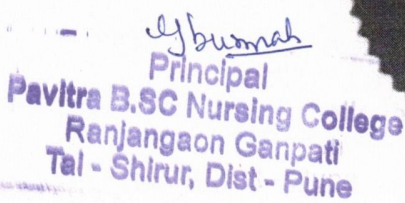 Principal
Pavitra B.SC Nursing College
Ranjangaon Ganpati
Tal - Shirur, Dist - Pune